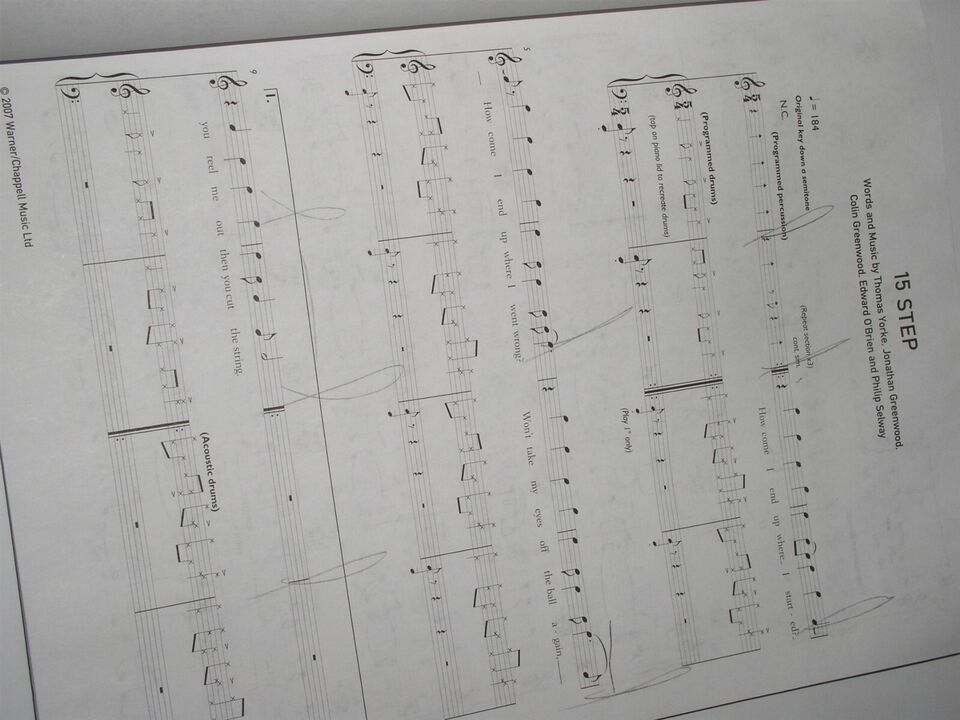 15 STEP
Words and Music by Thomas Yorke, Jonathan Greenwood,
Colin Greenwood, Edward O'Brien and Philip Selway
♩ = 184
Original key down a semitone
N.C.
(Programmed percussion)
(Repeat section x3)
cont. sim.
How come I end up where I start - ed?
(Programmed drums)
(tap on piano lid to recreate drums)
(Play 1° only)
5
How come I end up where I went wrong? Won't take my eyes off the ball a - gain,
9
1.
you reel me out then you cut the string.
(Acoustic drums)
© 2007 Warner/Chappell Music Ltd